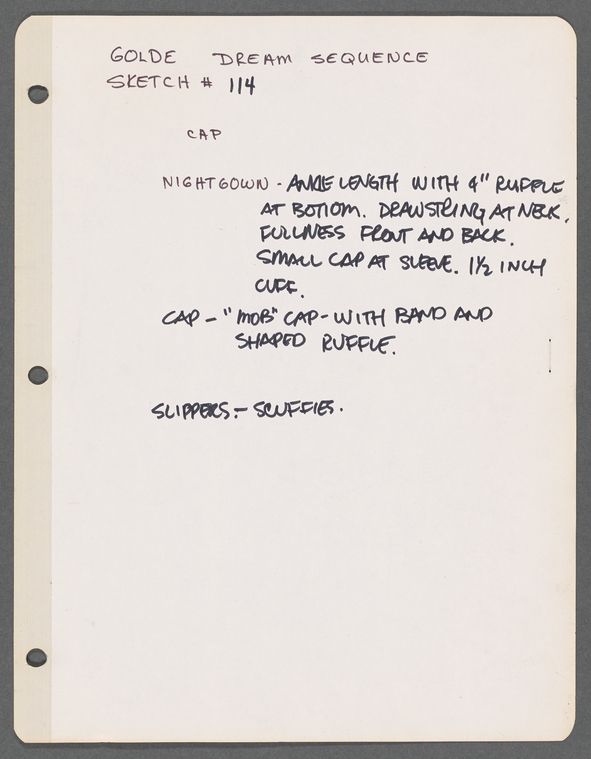 GOLDE DREAM SEQUENCE
SKETCH # 114
CAP
NIGHTGOWN - ANKLE LENGTH WITH 4" RUFFLE
AT BOTTOM. DRAWSTRING AT NECK.
FULLNESS FRONT AND BACK.
SMALL CAP AT SLEEVE. 1½ INCH
CUFF.
CAP - "MOB" CAP - WITH BAND AND
SHAPED RUFFLE.
SLIPPERS. - SCUFFIES.